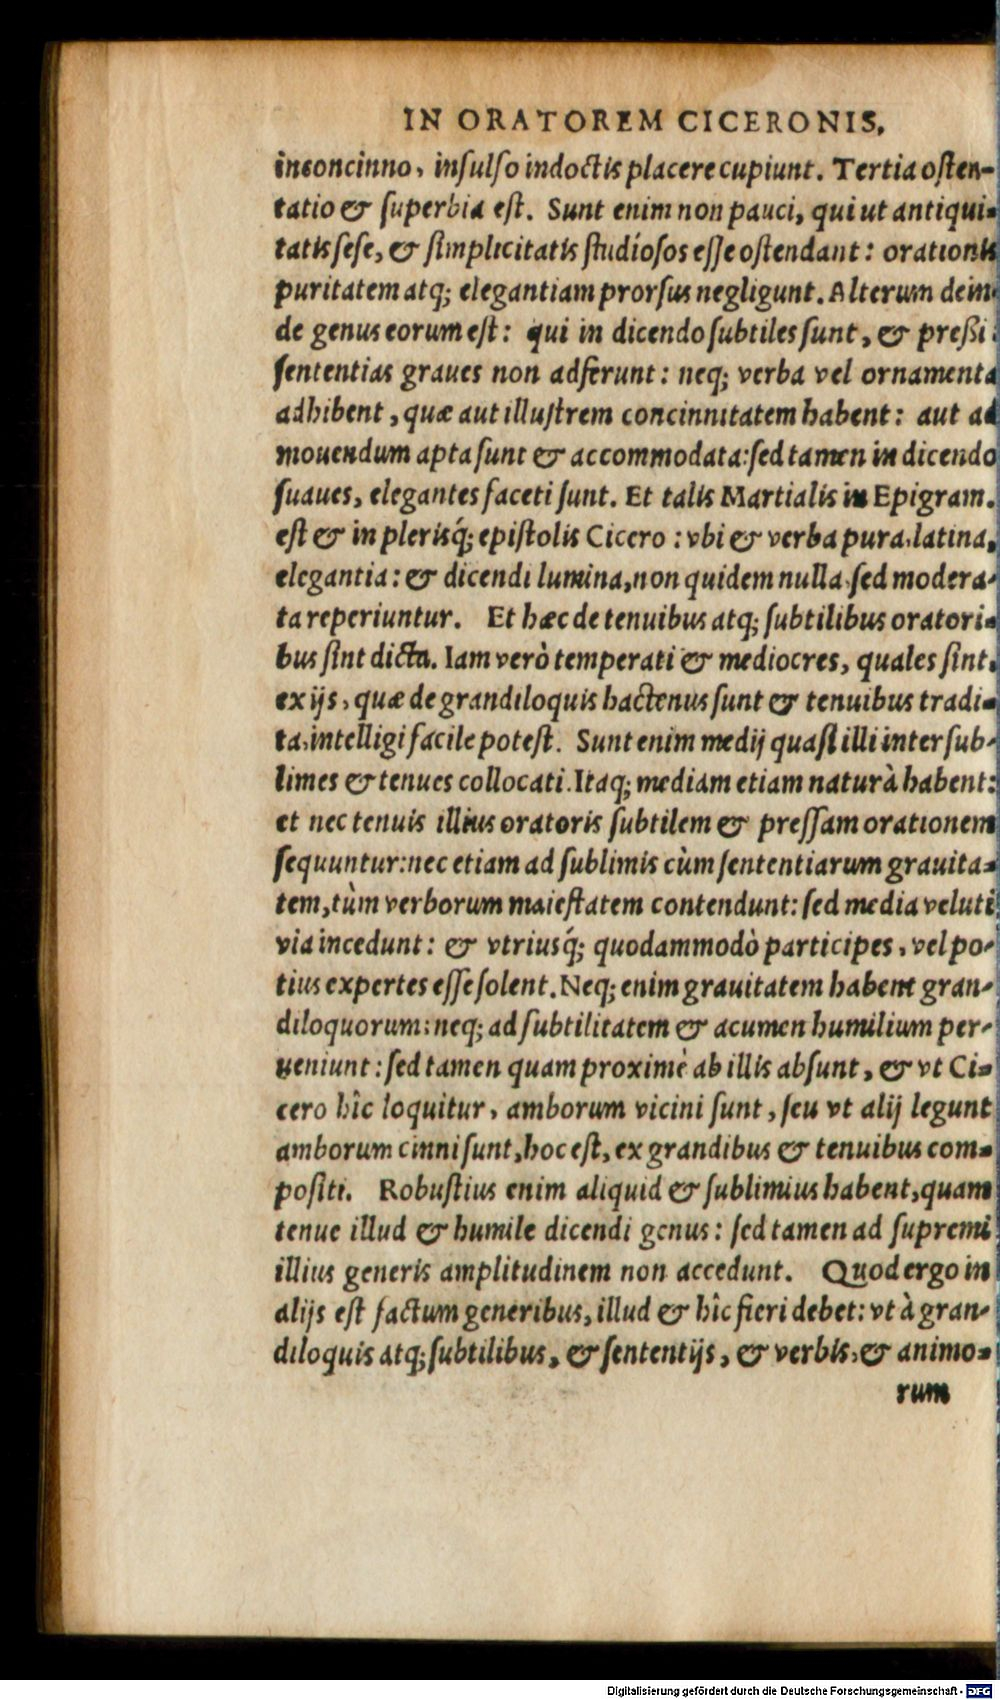 IN ORATOREM CICERONIS.
inconcinno, insulso indoctis placere cupiunt. Tertia osten-
tatio & superbia est. Sunt enim non pauci, qui ut antiqui-
tatis sese, & simplicitatis studiosos esse ostendant: orationis
puritatem atq; elegantiam prorsus negligunt. Alterum dein-
de genus eorum est: qui in dicendo subtiles sunt, & preßi:
sententias graues non adferunt: neq; verba vel ornamenta
adhibent, quæ aut illustrem concinnitatem habent: aut ad
mouendum apta sunt & accommodata: sed tamen in dicendo
suaues, elegantes faceti sunt. Et talis Martialis in Epigram.
est & in plerisq́; epistolis Cicero: vbi & verba pura, latina,
elegantia: & dicendi lumina, non quidem nulla, sed modera-
ta reperiuntur. Et hæc de tenuibus atq; subtilibus oratori-
bus sint dicta. Iam verò temperati & mediocres, quales sint,
ex ijs, quæ de grandiloquis hactenus sunt & tenuibus tradi-
ta, intelligi facile potest. Sunt enim medij quasi illi inter sub-
limes & tenues collocati. Itaq; mediam etiam naturà habent:
et nec tenuis illius oratoris subtilem & pressam orationem
sequuntur: nec etiam ad sublimis cùm sententiarum grauita-
tem, tùm verborum maiestatem contendunt: sed media veluti
via incedunt: & vtriusq́; quodammodò participes, vel po-
tius expertes esse solent. Neq; enim grauitatem habent gran-
diloquorum: neq; ad subtilitatem & acumen humilium per-
ueniunt: sed tamen quam proximè ab illis absunt, & vt Ci-
cero hîc loquitur, amborum vicini sunt, seu vt alij legunt
amborum cinni sunt, hoc est, ex grandibus & tenuibus com-
positi. Robustius enim aliquid & sublimius habent, quam
tenue illud & humile dicendi genus: sed tamen ad supremi
illius generis amplitudinem non accedunt. Quod ergo in
alijs est factum generibus, illud & hîc fieri debet: vt à gran-
diloquis atq; subtilibus, & sententijs, & verbis, & animo-
rum
Digitalisierung gefördert durch die Deutsche Forschungsgemeinschaft - DFG